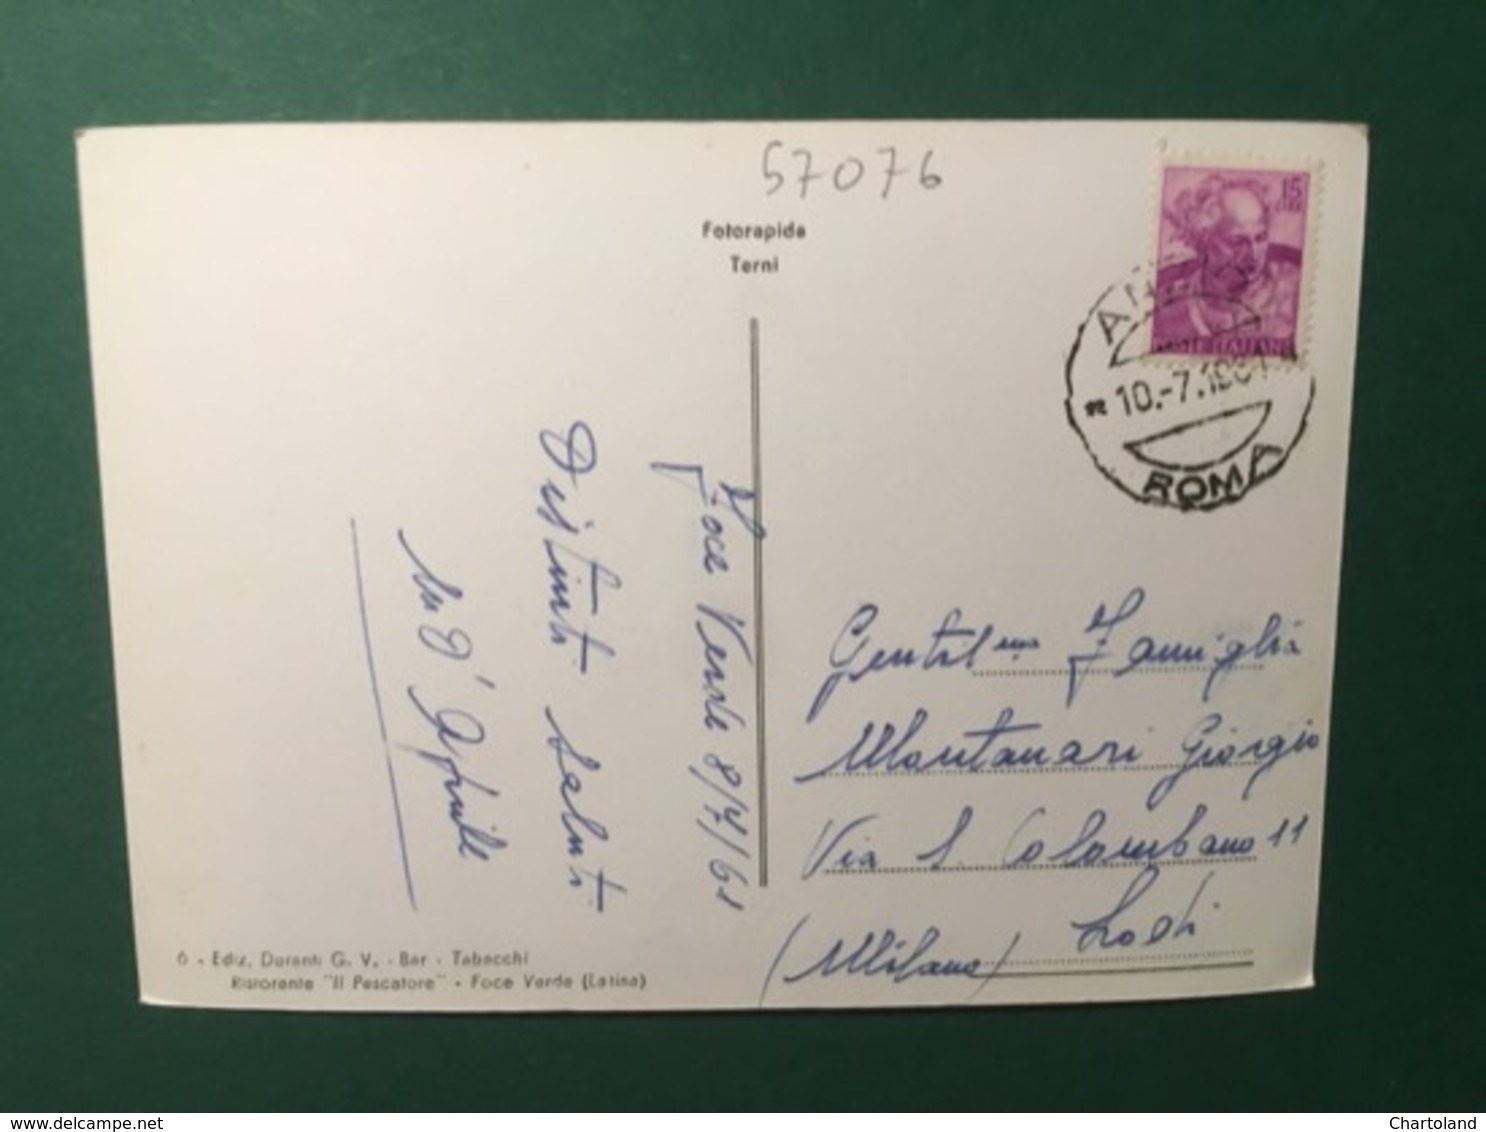 57076
Fotorapida
Terni
15
LIRE
POSTE ITALIANE
10.-7.1961
ROMA
Foce Verde 8/7/61
Distinti Saluti
D'Aprile
Gentil.ma Famiglia
Montanari Giorgio
Via S. Colombano 11
Lodi
(Milano)
6 - Ediz. Duranti G. V. - Bar - Tabacchi
Ristorante "Il Pescatore" - Foce Verde (Latina)
delcampe.net
Chartoland